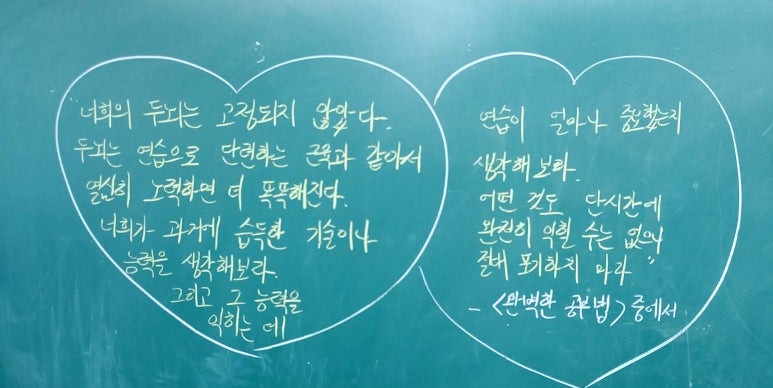 "너희의 두뇌는 고정되지 않았다.
두뇌는 연습으로 단련하는 근육과 같아서
열심히 노력하면 더 똑똑해진다.
너희가 과거에 습득한 기술이나
능력을 생각해보라.
그리고 그 능력을
익히는 데
연습이 얼마나 중요했는지
생각해보라.
어떤 것도 단시간에
완전히 익힐 수는 없으니
절대 포기하지 마라"
- <완벽한 공부법> 중에서